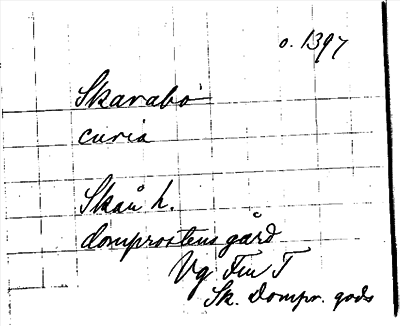 o. 1397
Skarabo
curia
Skån h.
domprostens gård
Vg Fm T
Sk. Dompr. gods